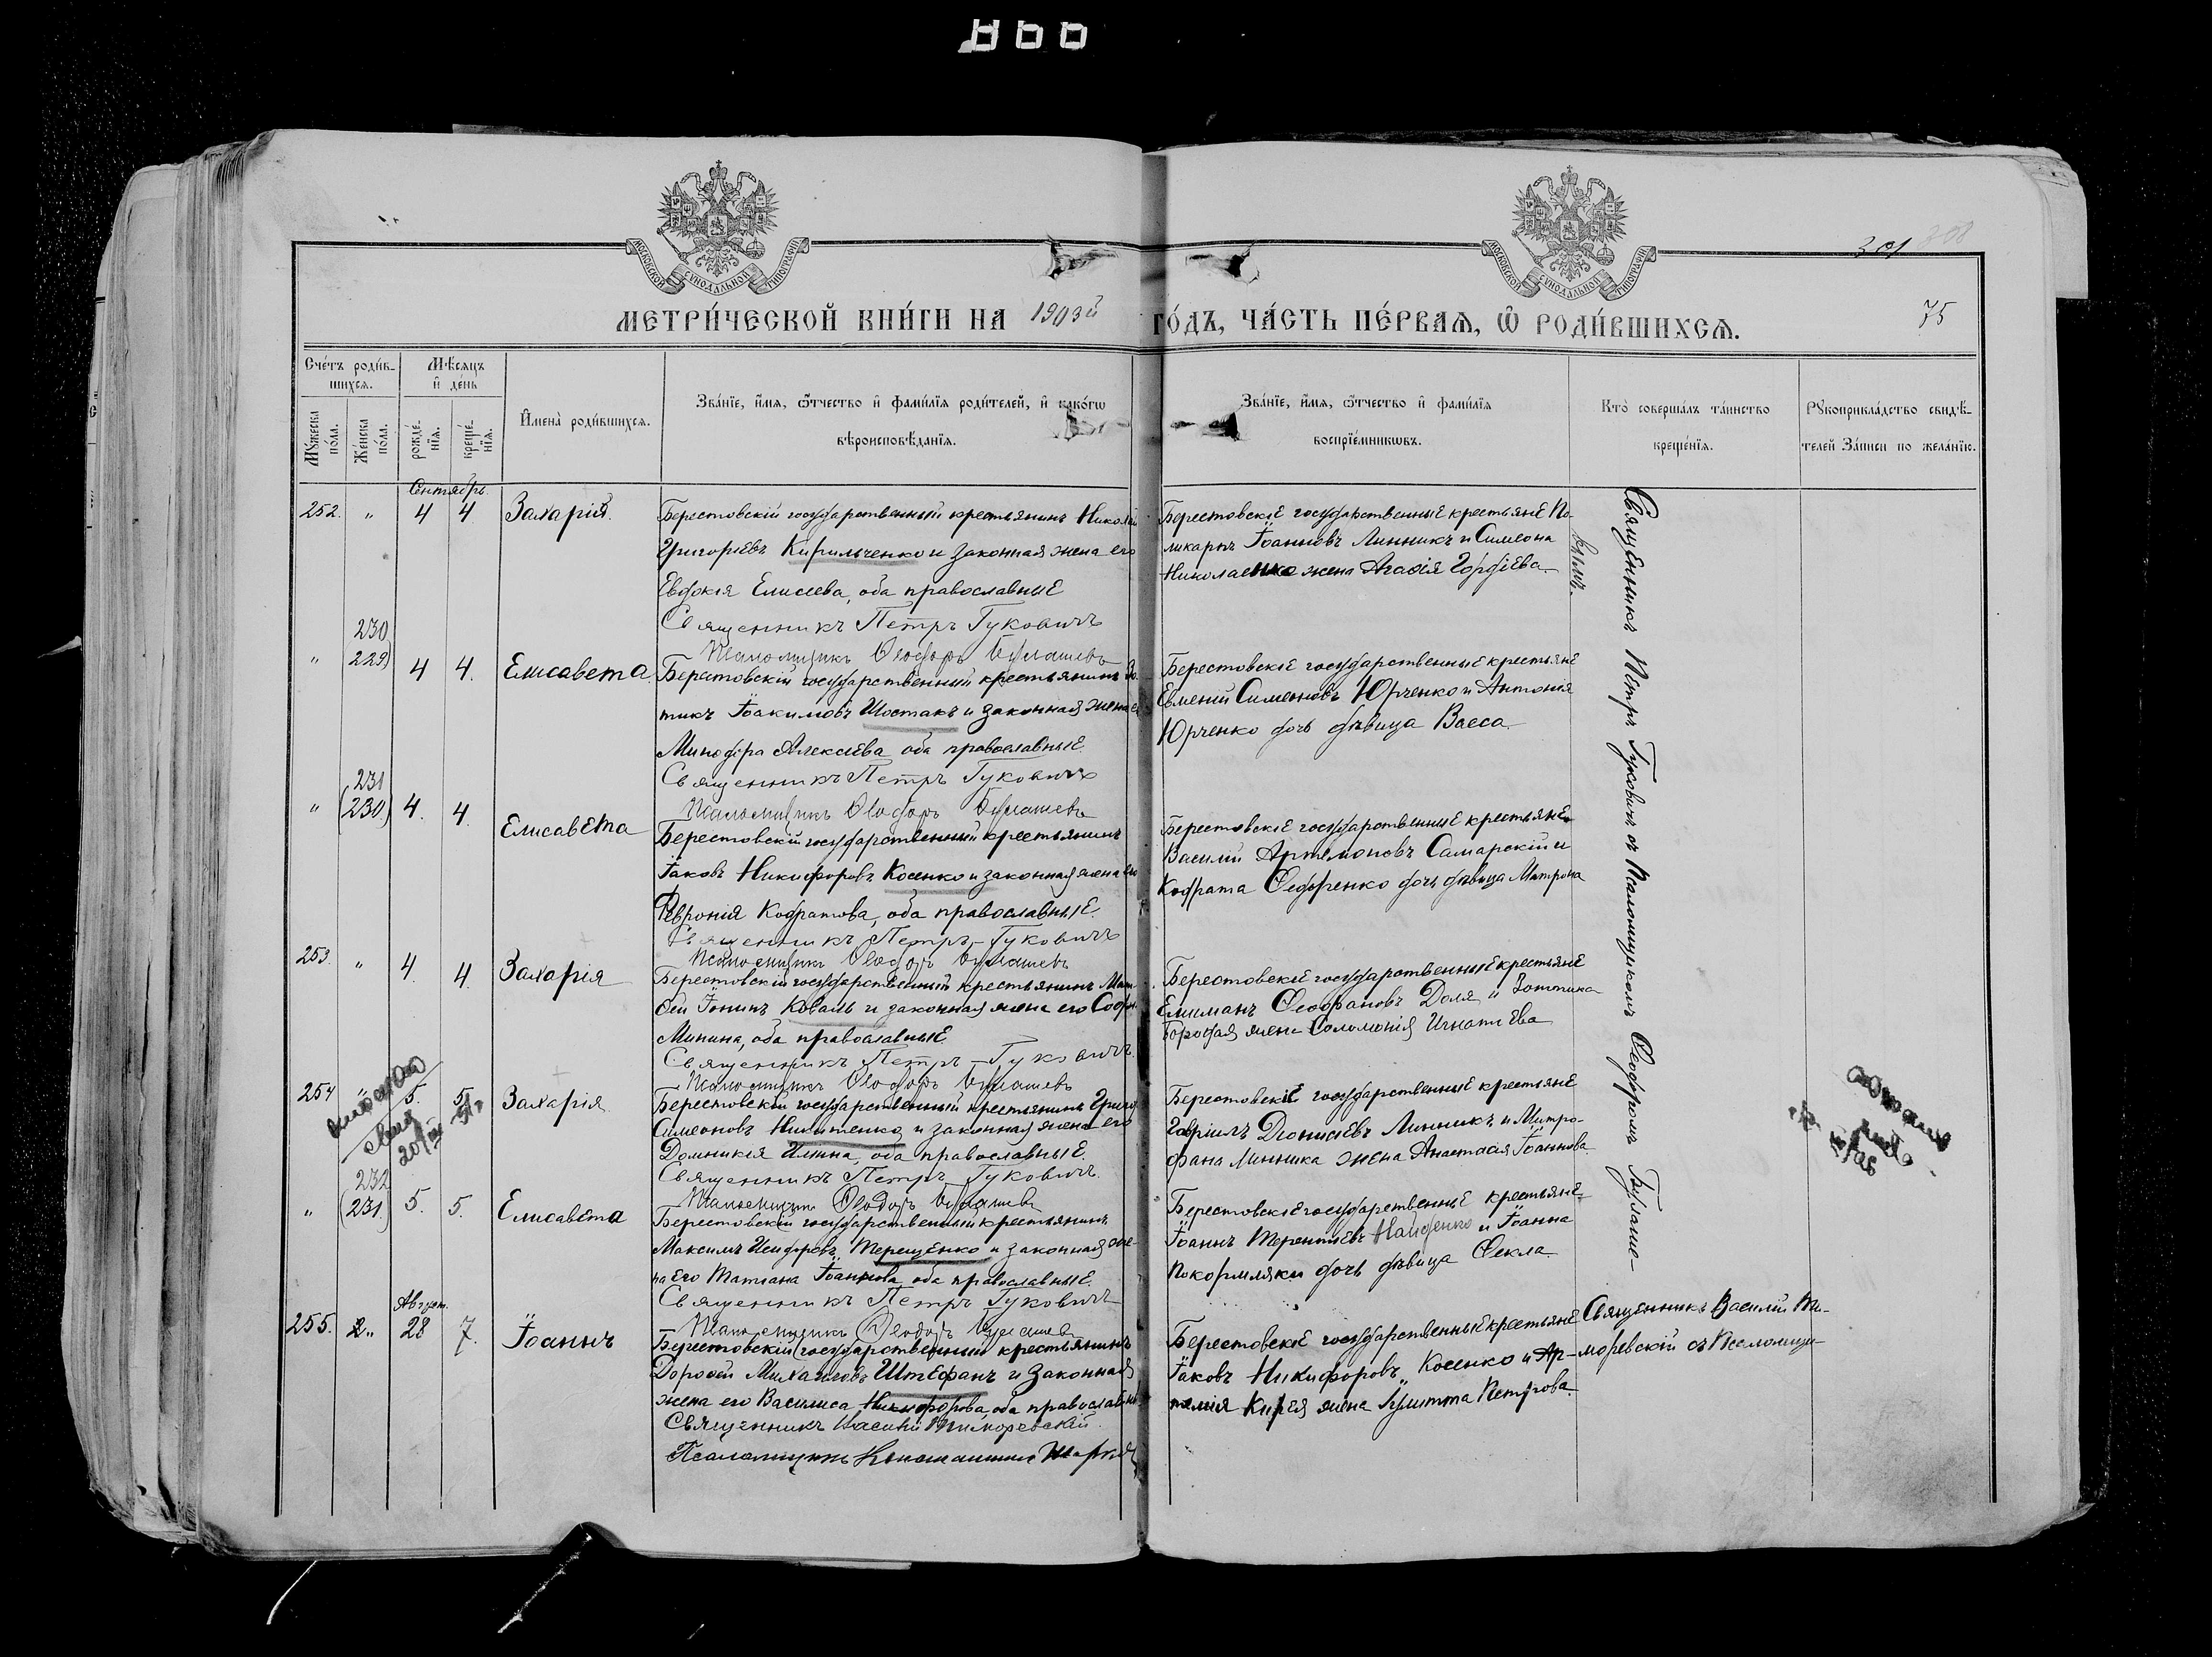 301
МОСКОВСКОЙ СѴНОДАЛЬНОЙ ТИПОГРАФІИ
МОСКОВСКОЙ СѴНОДАЛЬНОЙ ТИПОГРАФІИ
МЕТРИ́ЧЕСКОЙ КНИ́ГИ НА 1903й ГО́ДЪ, ЧА́СТЬ ПЕ́РВАѦ, Ѡ҆ РОДИ́ВШИХСѦ.
75
Сче́тъ роди́в-
шихсѧ.
Мꙋ́жеска по́ла.
Же́нска по́ла.
Мѣ́сѧцъ и҆ де́нь
рожде́-
нїѧ.
креще́-
нїѧ.
И҆мена̀ роди́вшихсѧ.
Зва́нїе, и҆́мѧ, ѻ҆́тчество и҆ фами́лїѧ роди́телей, и҆ како́гѡ
вѣроисповѣ́данїѧ.
Зва́нїе, и҆́мѧ, ѻ҆́тчество и҆ фами́лїѧ
воспрїе́мникѡвъ.
Кто̀ соверша́лъ та́инство
креще́нїѧ.
Рꙋкоприкла́дство свидѣ́-
телей за́писи по жела́нїю.
Сентябрь
252. " 4 4 Захарія
Берестовскій государственный крестьянинъ Николай
Григорьевъ Кирильченко и законная жена его
Евдокія Елисеева, оба православные
Священникъ Петръ Гуковичъ
Псаломщикъ Ѳеодоръ Булашевъ
Берестовскіе государственные крестьяне По-
ликарпъ Іоанновъ Линникъ и Симеона
Николаенко жена Агаѳія Гордіева
Священникъ Петръ Гуковичъ съ Псаломщикомъ Ѳеодоромъ Булаше-
вымъ.
" 230 229) 4 4. Елисавета
Берестовскій государственный крестьянинъ Зо-
тикъ Іоакимовъ Шостакъ и законная жена
Минодора Алексіева оба православные
Священникъ Петръ Гуковичъ
Псаломщикъ Ѳеодоръ Булашевъ
Берестовскіе государственные крестьяне
Евменій Симеоновъ Юрченко и Антонія
Юрченко дочь дѣвица Васса
" 231 (230.) 4. 4. Елисавета
Берестовскій государственный крестьянинъ
Іаковъ Никифоровъ Косенко и законная жена его
Ѳевронія Кодратова, оба православные.
Священникъ Петръ Гуковичъ
Псаломщикъ Ѳеодоръ Булашевъ
Берестовскіе государственные крестьяне
Василій Артемоновъ Самарскій и
Кодрата Ѳедоренко дочь дѣвица Матрона
253. " 4. 4. Захарія
Берестовскій государственный крестьянинъ Мат-
ѳей Іонинъ Коваль и законная жена его
Минина, оба православные
Священникъ Петръ Гуковичъ
Псаломщикъ Ѳеодоръ Булашевъ
Берестовскіе государственные крестьяне
Ѳеофановъ Доля и Зоттика
жена Соломонія Игнатіева
254 " 5. 5. Захарія
Берестовскій государственный крестьянинъ
Симеоновъ Никитенко и законная жена его
Домникія Ильина, оба православные.
Священникъ Петръ Гуковичъ
Псаломщикъ Ѳеодоръ Булашевъ
Берестовскіе государственные крестьяне
Гавріилъ Діонисіевъ Линникъ и Митро-
фана Линника жена Анастасія Іоаннова
" 232 (231.) 5. 5. Елисавета
Берестовскій государственный крестьянинъ
Максимъ Исидоровъ Терещенко и законная же-
на его Татіана Іоаннова оба православные.
Священникъ Петръ Гуковичъ
Псаломщикъ Ѳеодоръ Булашевъ
Берестовскіе государственные крестьяне
Іоаннъ Терентіевъ Найденко и Іоанна
Покормляки дочь дѣвица Ѳекла
Август.
255. " 28 7. Іоаннъ
Берестовскій государственный крестьянинъ
Дороѳей Михаиловъ Штефанъ и законная
жена его Василиса Никифорова оба православные
Священникъ Василій Тиморевскій
Псаломщикъ
Берестовскіе государственные крестьяне
Іаковъ Никифоровъ Косенко и Ар-
темія Кирея жена Іулитта Петрова
Священникъ Василій Ти-
моревскій съ Псаломщи-